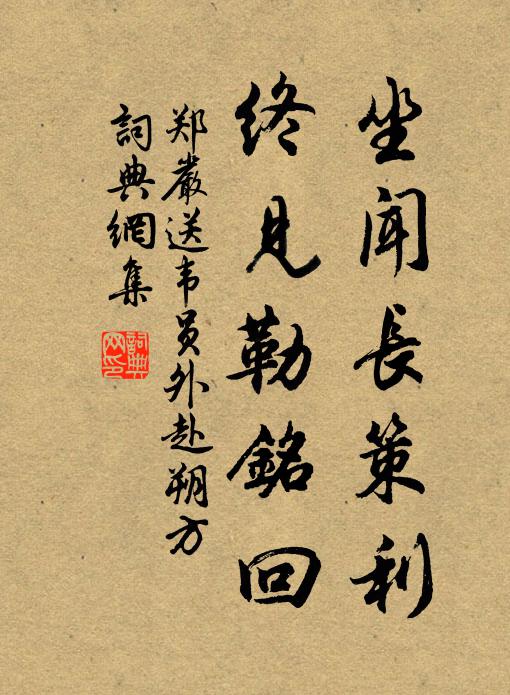 坐闻長策利
终見勒銘回
郑嚴送韦员外赴朔方
詞典網集
詞典网印